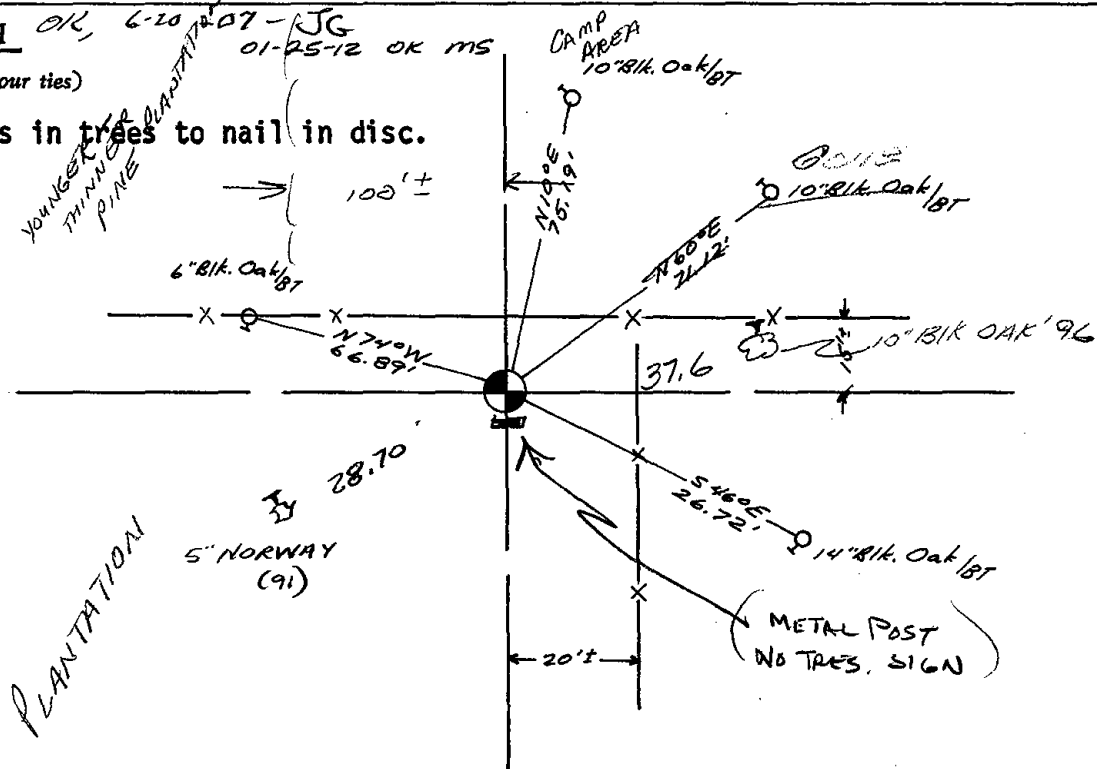 OK, 6-20-07 - JG
01-25-12 OK MS
our ties)
s in trees to nail in disc.
YOUNGER
THINNER
PINE PLANTATION
100'±
CAMP
AREA
10"Blk. Oak/BT
N10°E
75.19'
GONE
10"Blk. Oak/BT
N60°E
21.12'
6"Blk. Oak/BT
N74°W
66.89'
10"Blk OAK '96
15'±
37.6
28.70'
5" NORWAY
(91)
S46°E
26.72'
14"Blk. Oak/BT
METAL POST
NO TRES. SIGN
20'±
PLANTATION